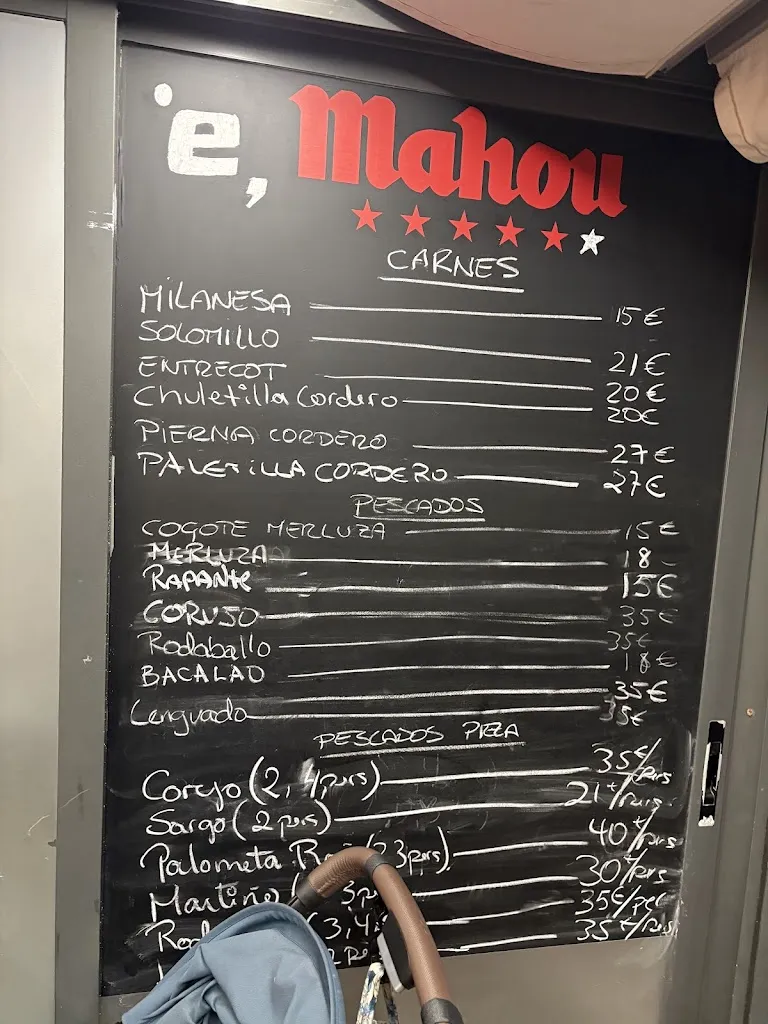 e, Mahou
CARNES
MILANESA 15€
SOLOMILLO 21€
ENTRECOT 20€
Chuletilla Cordero 20€
PIERNA CORDERO 27€
PALETILLA CORDERO 27€
PESCADOS
COGOTE MERLUZA 15€
MERLUZA 18
RAPANTE 15€
CORUSO 35€
Rodaballo 35€
BACALAO 18€
35€
Lenguado 35€
PESCADOS PIEZA
(2, 4 pers) 35€/pers
Sargo (2 pers) 21€/pers
Palometa 3 pers) 40€/pers
Martiño 30€/pers
(3, 4 35€/per
35€/pers